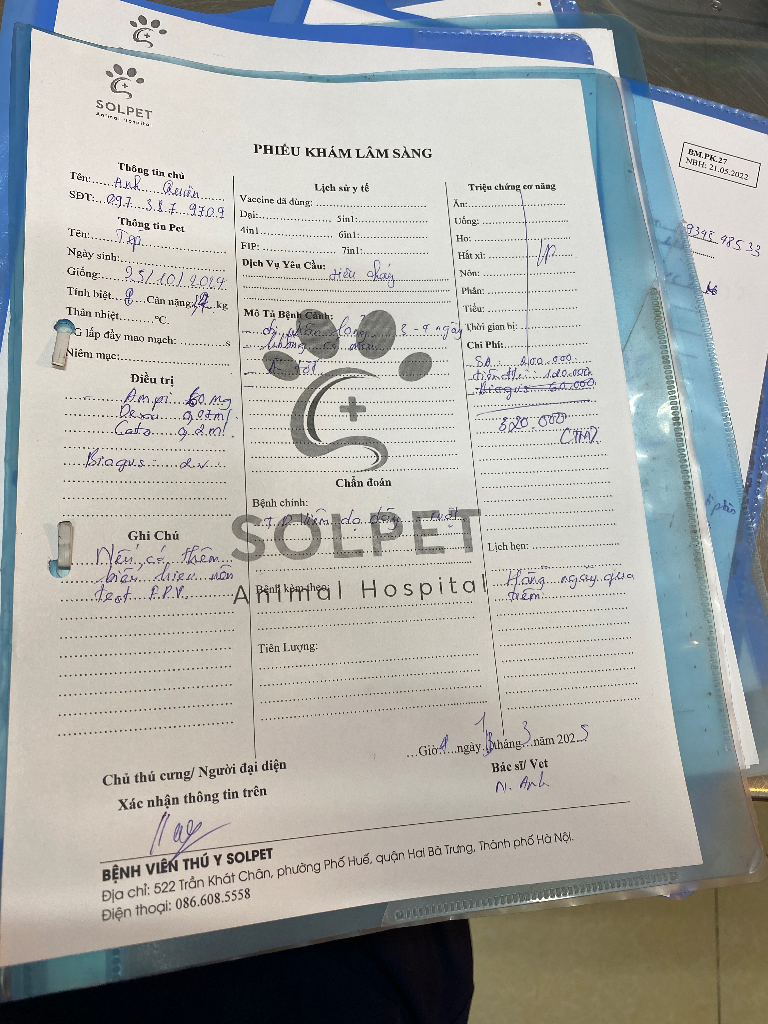 SOLPET
Animal Hospital
PHIẾU KHÁM LÂM SÀNG
BM.PK.27
NBH: 21.05.2022
Thông tin chủ
Tên: Anh Quân
SĐT: 097 387 9709
Thông tin Pet
Tên: Tép
Ngày sinh:
Giống: 25/10/2024
Tính biệt Cân nặng kg
Thân nhiệt °C.
G lấp đầy mao mạch: s
Niêm mạc:
Điều trị
Ampi 60 mg
Dexa 0,07ml
Cato 0,2ml
Biogus 2v
Ghi Chú
Nếu có thêm
biểu hiện nôn
test P.P.V
Lịch sử y tế
Vaccine đã dùng:
Dại: 5in1:
4in1 6in1:
FIP: 7in1:
Dịch Vụ Yêu Cầu: tiêu chảy
Mô Tả Bệnh Cảnh:
đi phân lỏng 3-4 ngày
không có máu
Ă tốt
Chẩn đoán
Bệnh chính:
T.D Viêm dạ dày ruột
Bệnh kèm theo:
Tiên Lượng:
SOLPET
Animal Hospital
Triệu chứng cơ năng
Ăn:
Uống:
Ho:
Hắt xì:
Nôn:
Phân:
Tiểu:
Thời gian bị:
Chi Phí:
SA 200.000
điều trị: 120.000
Biogus 60.000
320.000
Lịch hẹn:
Hằng ngày qua
tiêm
Giờ ngày tháng 3 năm 2025
Bác sĩ/ Vet
N. Anh
Chủ thú cưng/ Người đại diện
Xác nhận thông tin trên
BỆNH VIỆN THÚ Y SOLPET
Địa chỉ: 522 Trần Khát Chân, phường Phố Huế, quận Hai Bà Trưng, Thành phố Hà Nội.
Điện thoại: 086.608.5558